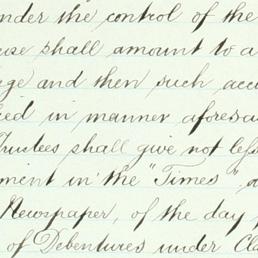 nder the control of the
use shall amount to a
ge and then such acc
ied in manner aforesa
Trustees shall give not less
ment in the "Times",
Newspaper, of the day
of Debentures under Cla